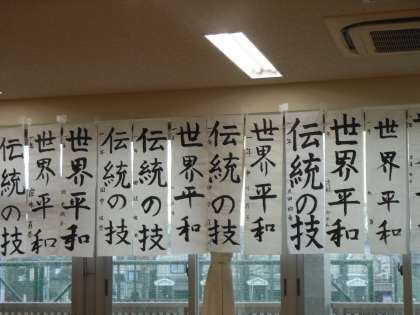 伝統の技
世界平和
世界平和
伝統の技
伝統の技
世界平和
伝統の技
世界平和
伝統の技
世界平和
世界平和